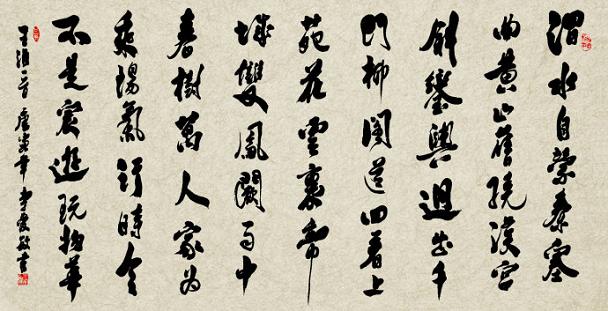 渭水自縈秦塞
曲黃山舊繞漢宮
斜鑾輿迥出千
門柳閣道回看上
苑花雲裏帝
城雙鳳闕雨中
春樹萬人家为
乘陽氣行時令
不是宸遊玩物華
王維一首 年 李 書